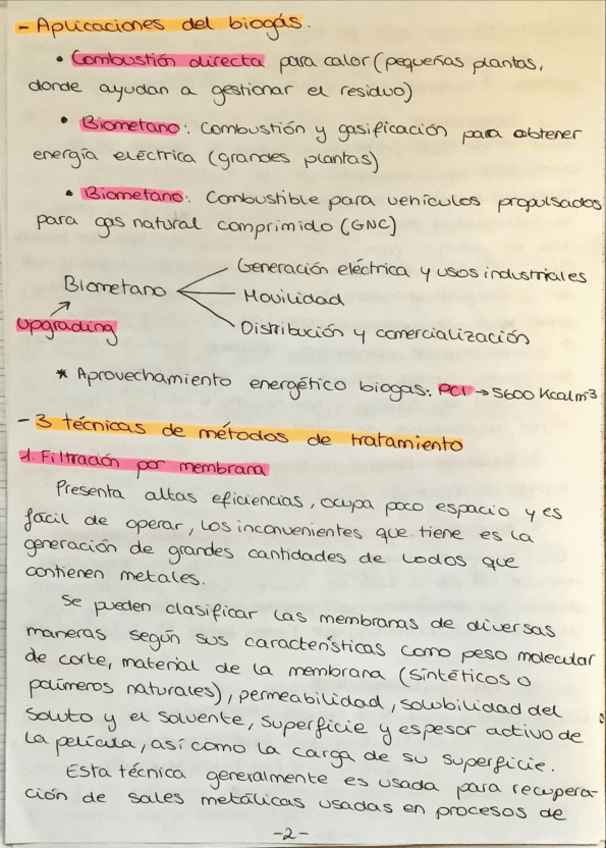 - Aplicaciones del biogás.
• Combustión directa para calor (pequeñas plantas,
donde ayudan a gestionar el residuo)
• Biometano: Combustión y gasificación para obtener
energía eléctrica (grandes plantas)
• Biometano: Combustible para vehículos propulsados
para gas natural comprimido (GNC)
Generación eléctrica y usos industriales
Biometano
Movilidad
Upgrading
Distribución y comercialización
* Aprovechamiento energético biogas: PCI → 5600 Kcalm³
- 3 técnicas de métodos de tratamiento
1. Filtración por membrana
Presenta altas eficiencias, ocupa poco espacio y es
fácil de operar, los inconvenientes que tiene es la
generación de grandes cantidades de lodos que
contienen metales.
Se pueden clasificar las membranas de diversas
maneras según sus características como peso molecular
de corte, material de la membrana (sintéticos o
polímeros naturales), permeabilidad, solubilidad del
soluto y el solvente, superficie y espesor activo de
la película, así como la carga de su superficie.
Esta técnica generalmente es usada para recupera-
ción de sales metálicas usadas en procesos de
-2-